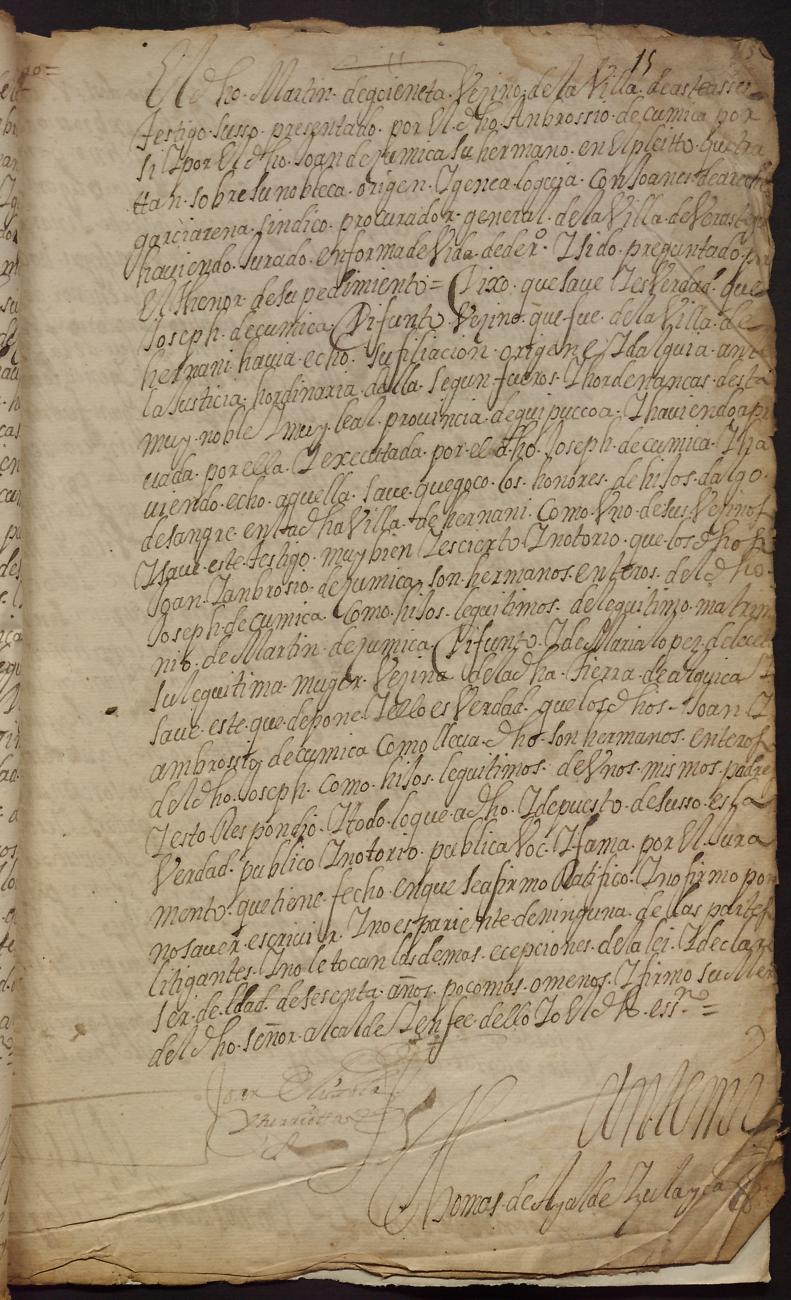 15
El dho. Martin. degoieneta. Vezino. de la Villa. de asteassu
testigo. susso. presentado. por El dho. Anbrossio. de çumica por
si I por El dho. Joan de Zumica su hermano. en El pleitto. que tra
ttan. sobre su nobleça. origen. I genealogçia. con Joanes de arreche
garciarena. sindico. procurador. general. de la Villa. de Verastegui
haviendo. Jurado. en forma de Vida. de derº. I sido. preguntado. por
El thenor. de su pedimiento = Dixo. que saue I es Verdad. que
Joseph. de çumica. Difunto. Vezino. que fue. de la Villa. de
hernani. hauia. echo. su filiacion. origen e Idalguia. ante
la Justicia. hordinaria. della. segun fueros. I hordenanças. desta
muy. noble I muy. leal. prouincia. de guipuccoa. I hauiendo. apro
uada. por ella. I executada. por el dho. Joseph. de çumica. I ha
uiendo. echo. aquella. saue. que goço. los. honores. de hijos. dalgo.
de sangre. en la dha Villa. de hernani. Como Vno. de sus Vezinos
I saue. este. testigo. muy bien I es cierto I notorio. que. los dhos
Joan. I anbrosio. de Zumica. son. hermanos. enteros. del dho.
Joseph. de çumica. Como. hijos. legitimos. de legitimo. matrimo
nio. de Martin. de Zumica. Difunto. I de Maria lopez.
su legitima. muger. Vezina de la dha. tierra. de
saue. este. que. depone. I ello es Verdad. que los dhos. Joan. I
ambrossio. de çumica Como lleua. dho. son hermanos. enteros
del dho. Joseph. como. hijos. legitimos. de Vnos. mismos. padres
I esto Respondio. I todo. lo que. a dho. I depuesto. de susso. es la
Verdad. publico I notorio. publica Voç. I fama. por El Jura
mento. que tiene. fecho. en que se afirmo Ratifico. I no firmo por
no sauer. escriuir. I no es pariente de ninguna. de las partes
litigantes. I no le tocan las demas. ecepciones. de la lei. I declaro
ser. de edad. de sesenta. años. poco mas. o menos. I firmo su Md
del dho. señor. alcalde I en fee dello Io El dho. essno =
Antemi
Tomas. de Ayalde Zulayca